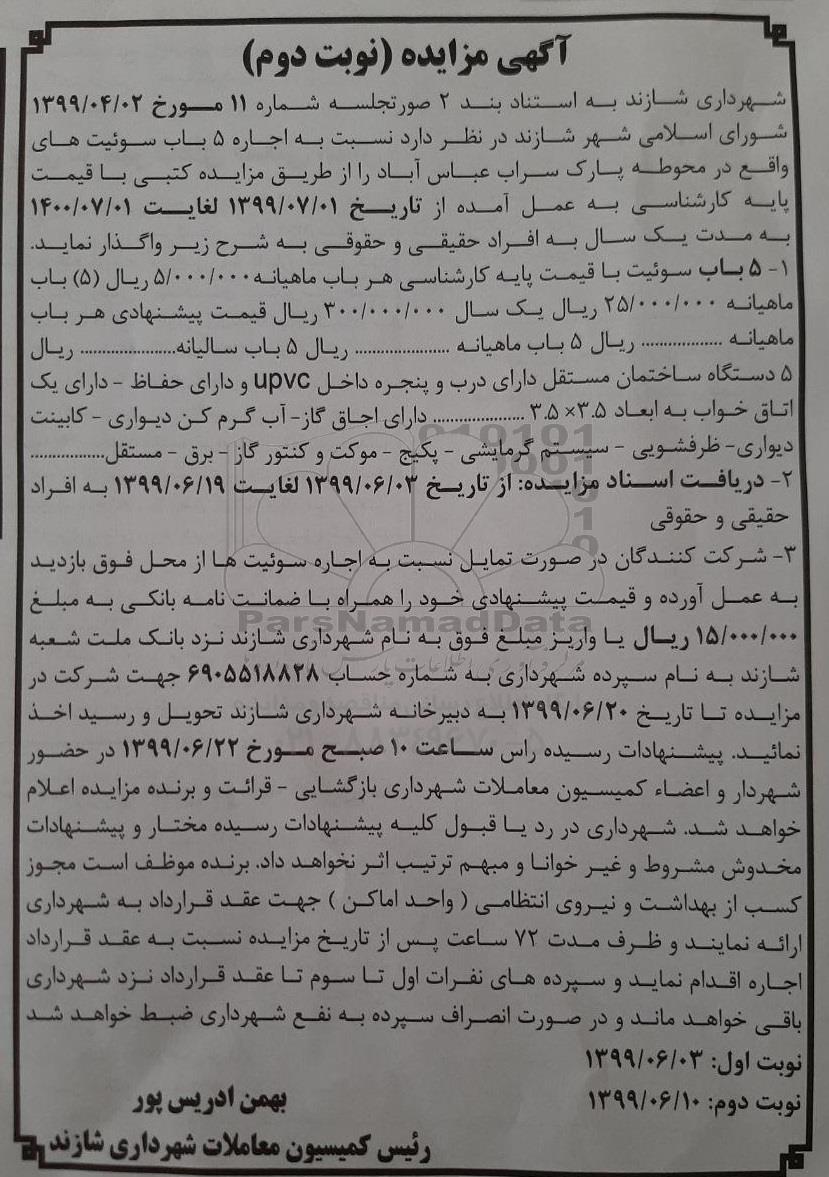 آگهی مزایده (نوبت دوم)
شهرداری شازند به استناد بند ۲ صورتجلسه شماره ۱۱ مورخ ۱۳۹۹/۰۴/۰۲
شورای اسلامی شهر شازند در نظر دارد نسبت به اجاره ۵ باب سوئیت های
واقع در محوطه پارک سراب عباس آباد را از طریق مزایده کتبی با قیمت
پایه کارشناسی به عمل آمده از تاریخ ۱۳۹۹/۰۷/۰۱ لغایت ۱۴۰۰/۰۷/۰۱
به مدت یک سال به افراد حقیقی و حقوقی به شرح زیر واگذار نماید.
۱- ۵ باب سوئیت با قیمت پایه کارشناسی هر باب ماهیانه ۵/۰۰۰/۰۰۰ ریال (۵) باب
ماهیانه ۲۵/۰۰۰/۰۰۰ ریال یک سال ۳۰۰/۰۰۰/۰۰۰ ریال قیمت پیشنهادی هر باب
ماهیانه .................. ریال ۵ باب ماهیانه ..................... ریال ۵ باب سالیانه..................... ریال
۵ دستگاه ساختمان مستقل دارای درب و پنجره داخل upvc و دارای حفاظ - دارای یک
اتاق خواب به ابعاد ۳.۵×۳.۵ .................... دارای اجاق گاز- آب گرم کن دیواری - کابینت
دیواری- ظرفشویی - سیستم گرمایشی - پکیج - موکت و کنتور گاز - برق - مستقل................
۲- دریافت اسناد مزایده: از تاریخ ۱۳۹۹/۰۶/۰۳ لغایت ۱۳۹۹/۰۶/۱۹ به افراد
حقیقی و حقوقی
۳- شرکت کنندگان در صورت تمایل نسبت به اجاره سوئیت ها از محل فوق بازدید
به عمل آورده و قیمت پیشنهادی خود را همراه با ضمانت نامه بانکی به مبلغ
ParsNamadData
۱۵/۰۰۰/۰۰۰ ریال یا واریز مبلغ فوق به نام شهرداری شازند نزد بانک ملت شعبه
شازند به نام سپرده شهرداری به شماره حساب ۶۹۰۵۵۱۸۸۲۸ جهت شرکت در
مزایده تا تاریخ ۱۳۹۹/۰۶/۲۰ به دبیرخانه شهرداری شازند تحویل و رسید اخذ
نمائید. پیشنهادات رسیده راس ساعت ۱۰ صبح مورخ ۱۳۹۹/۰۶/۲۲ در حضور
شهردار و اعضاء کمیسیون معاملات شهرداری بازگشایی - قرائت و برنده مزایده اعلام
خواهد شد. شهرداری در رد یا قبول کلیه پیشنهادات رسیده مختار و پیشنهادات
مخدوش مشروط و غیر خوانا و مبهم ترتیب اثر نخواهد داد. برنده موظف است مجوز
کسب از بهداشت و نیروی انتظامی ( واحد اماکن ) جهت عقد قرارداد به شهرداری
ارائه نمایند و ظرف مدت ۷۲ ساعت پس از تاریخ مزایده نسبت به عقد قرارداد
اجاره اقدام نماید و سپرده های نفرات اول تا سوم تا عقد قرارداد نزد شهرداری
باقی خواهد ماند و در صورت انصراف سپرده به نفع شهرداری ضبط خواهد شد
نوبت اول: ۱۳۹۹/۰۶/۰۳
نوبت دوم: ۱۳۹۹/۰۶/۱۰
بهمن ادریس پور
رئیس کمیسیون معاملات شهرداری شازند